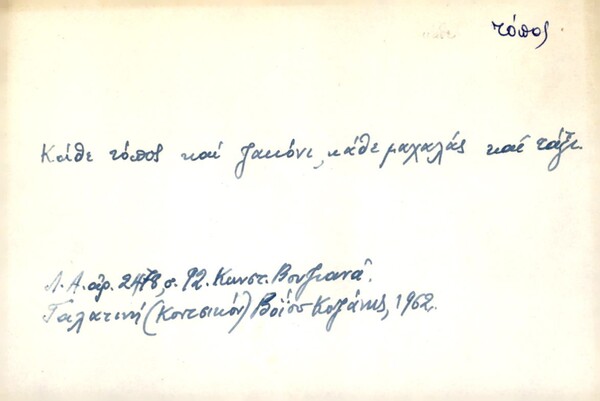 τόπος
Κάθε τόπος καί ζακόνι, κάθε μαχαλάς καί τάξι.
Λ.Α. ἀρ. 2478, σ. 92. Κωνστ.
Γαλατινή (Κοντσικόν) Βοΐου Κοζάνης, 1962.